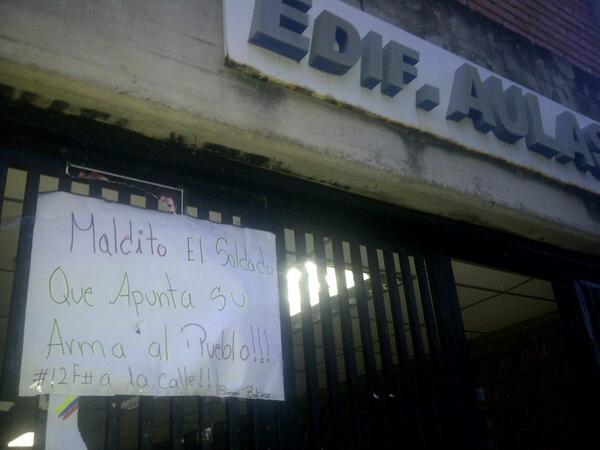 EDIF. AULAS
Maldito El Soldado
Que Apunta su
Arma al Pueblo!!!
#12F# a la calle!!!
Simon Bolivar.